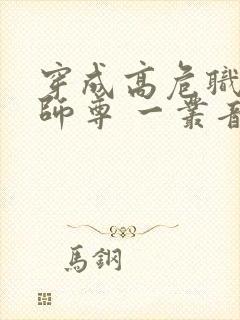 穿成高危職
師尊 一叢音
馬鋼